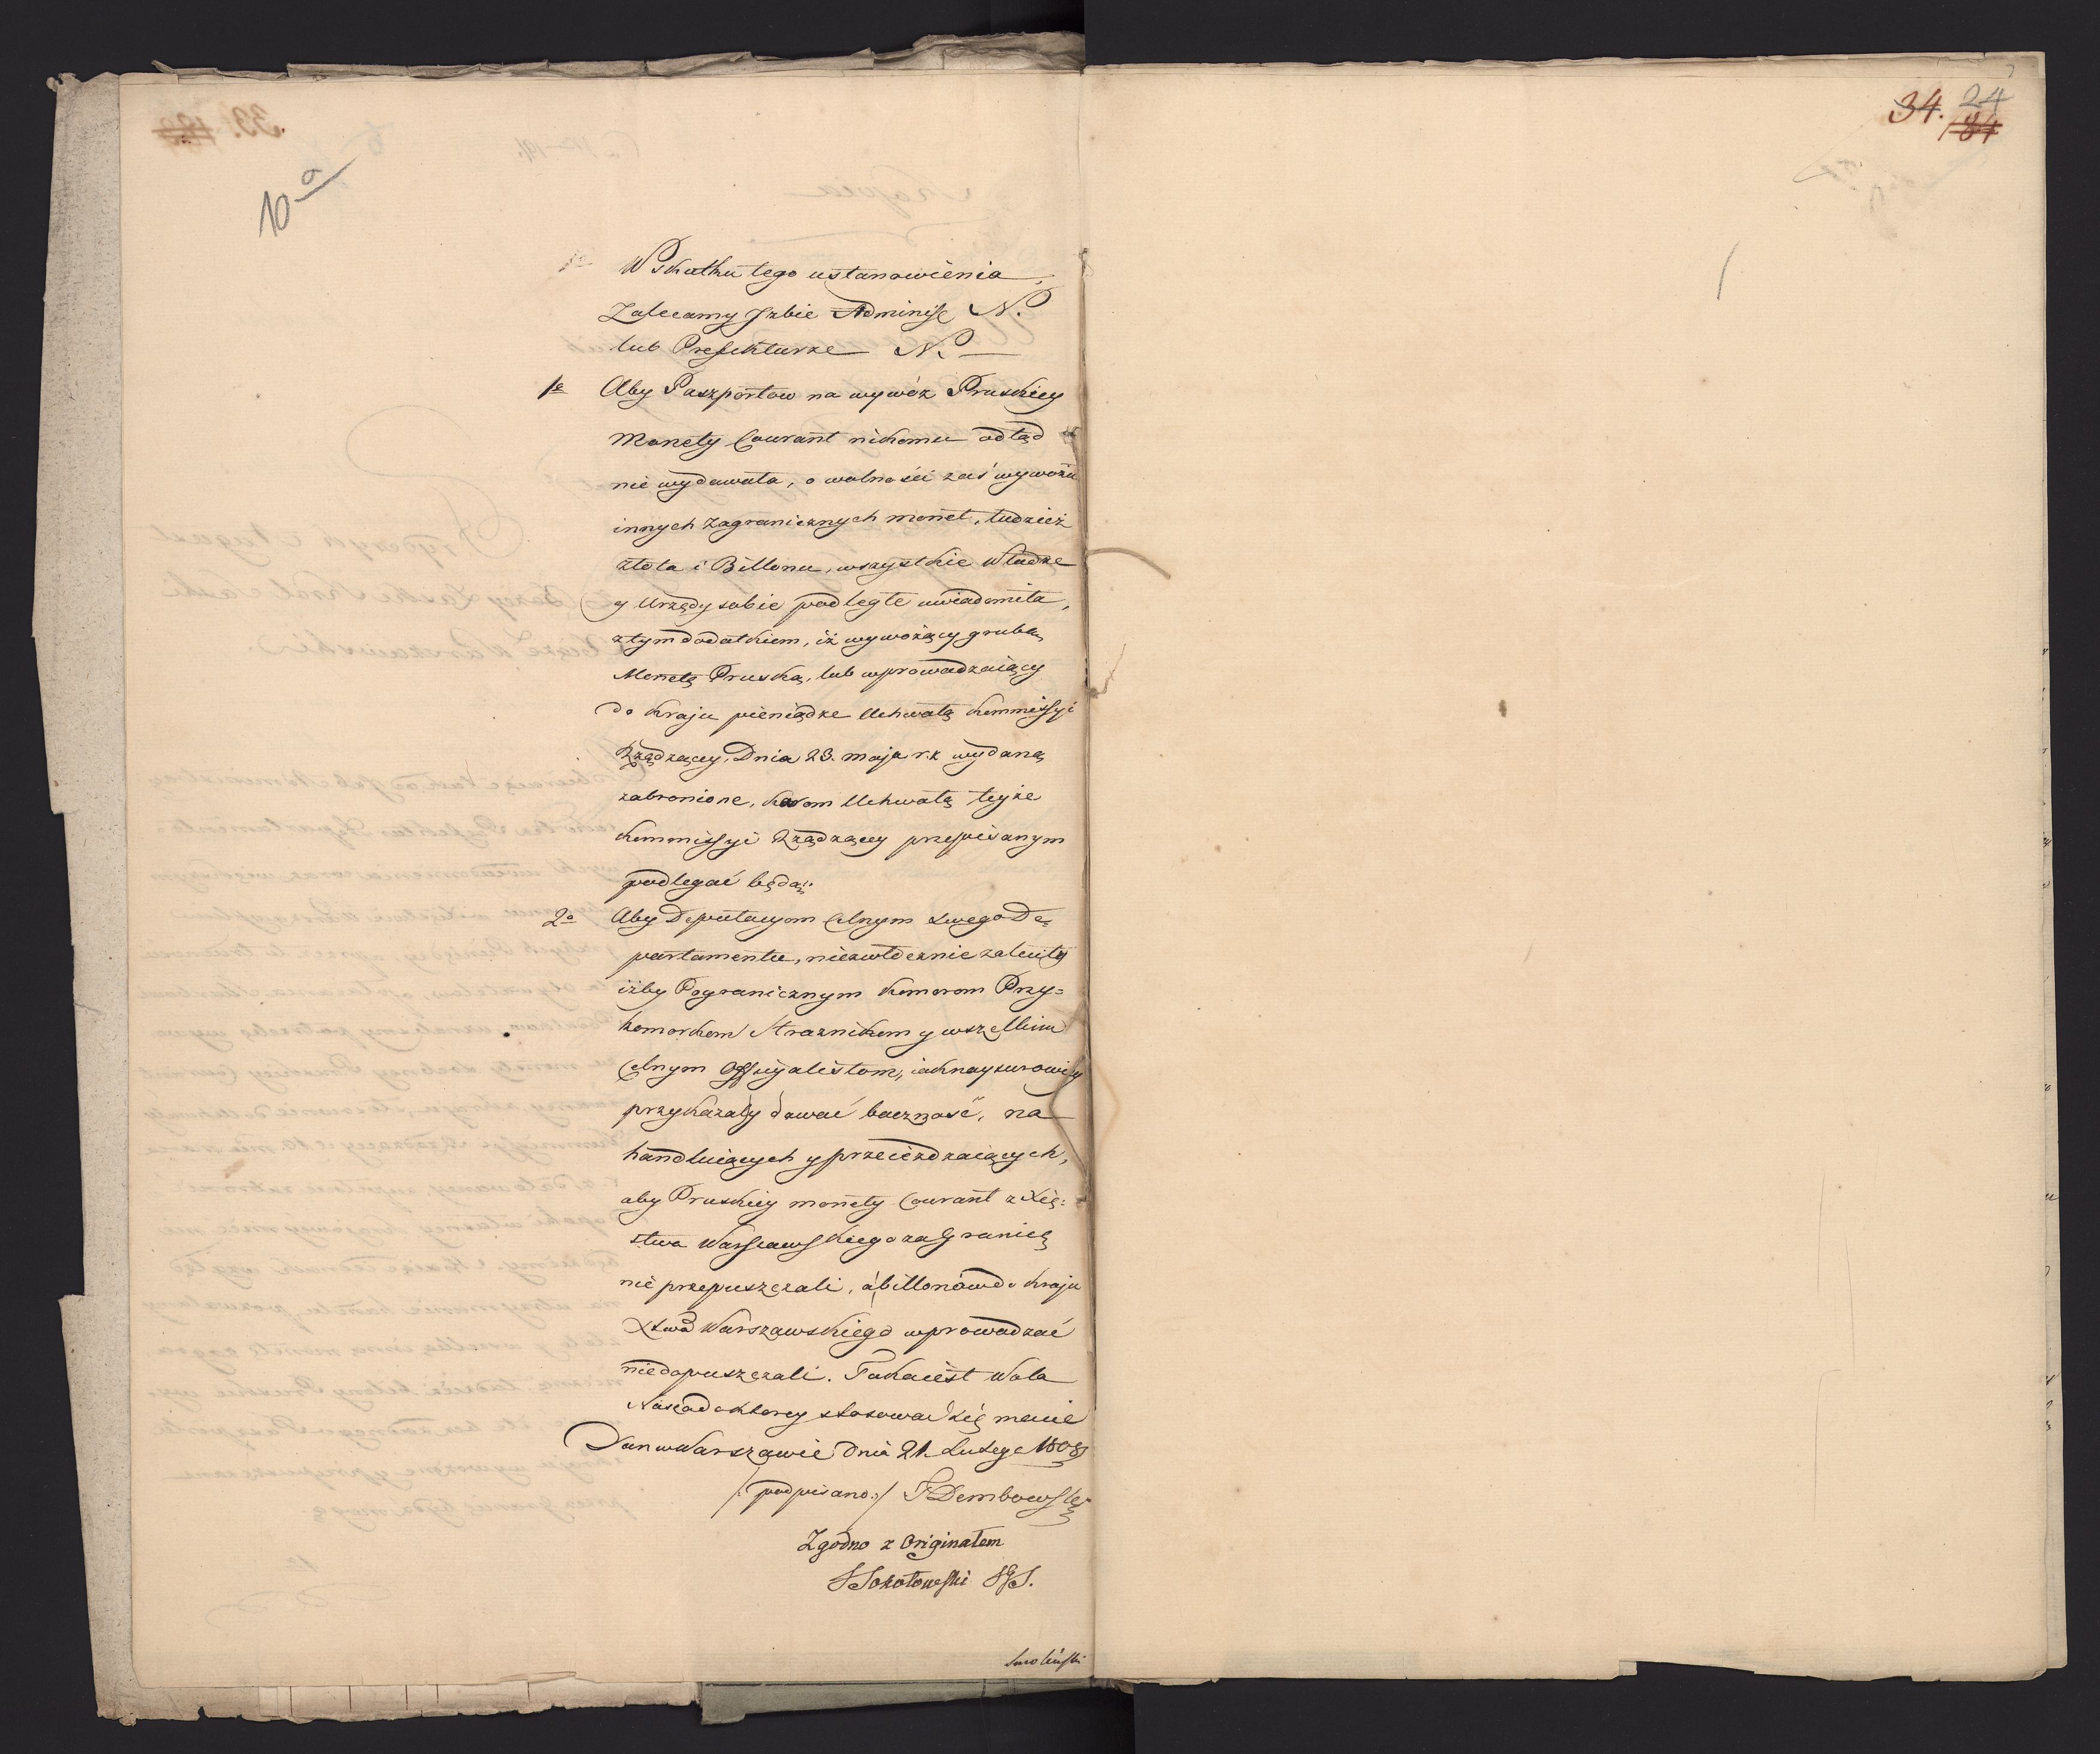 10a
W skutku tego ustanowienia,
Zalecamy Izbie Administ N.
lub Prefekturze N.
1e Aby Paszportow na wywóz Pruskiey
Monety Courant nikomu odtąd
nie wydawała, o wolności zaś wywozu
innych zagranicznych monet, tudzież
złota i Billonu, wszystkie Władze
y Urzędy sobie podległe uwiadomiła,
z tym dodatkiem, iż wywożący grubą
Monetę Pruską, lub wprowadzaiący
do Kraju pieniądze Uchwałą Kommissyi
Rządzącey, Dnia 23. maja r. z wydaną
zabronione, karom Uchwałą teyże
Kommissyi Rządzącey przepisanym
podlegać będą.
2o Aby Deputacyom Celnym swego De=
partamentu, niezwłocznie zaleciły
iżby Pogranicznym Komorom Przy=
komorkom Straznikom y wszelkim
Celnym Officyalistom, iaknaysurowiey
przykazały dawać baczność, na
handluiących y przeieżdzaiących,
aby Pruskiey monety Courant z Xię=
stwa Warszawskiego za Granicę
nie przepuszczali, a billonów do Kraju
Xtwa Warszawskiego wprowadzać
niedopuszczali. Taka iest Wola
Nasza do ktorey stosować się macie
Dan w Warszawie dnia 21. Lutego 1808
/:podpisano:/ Dembowski
Zgodno z Originałem
Sokołowski
34. 24
84